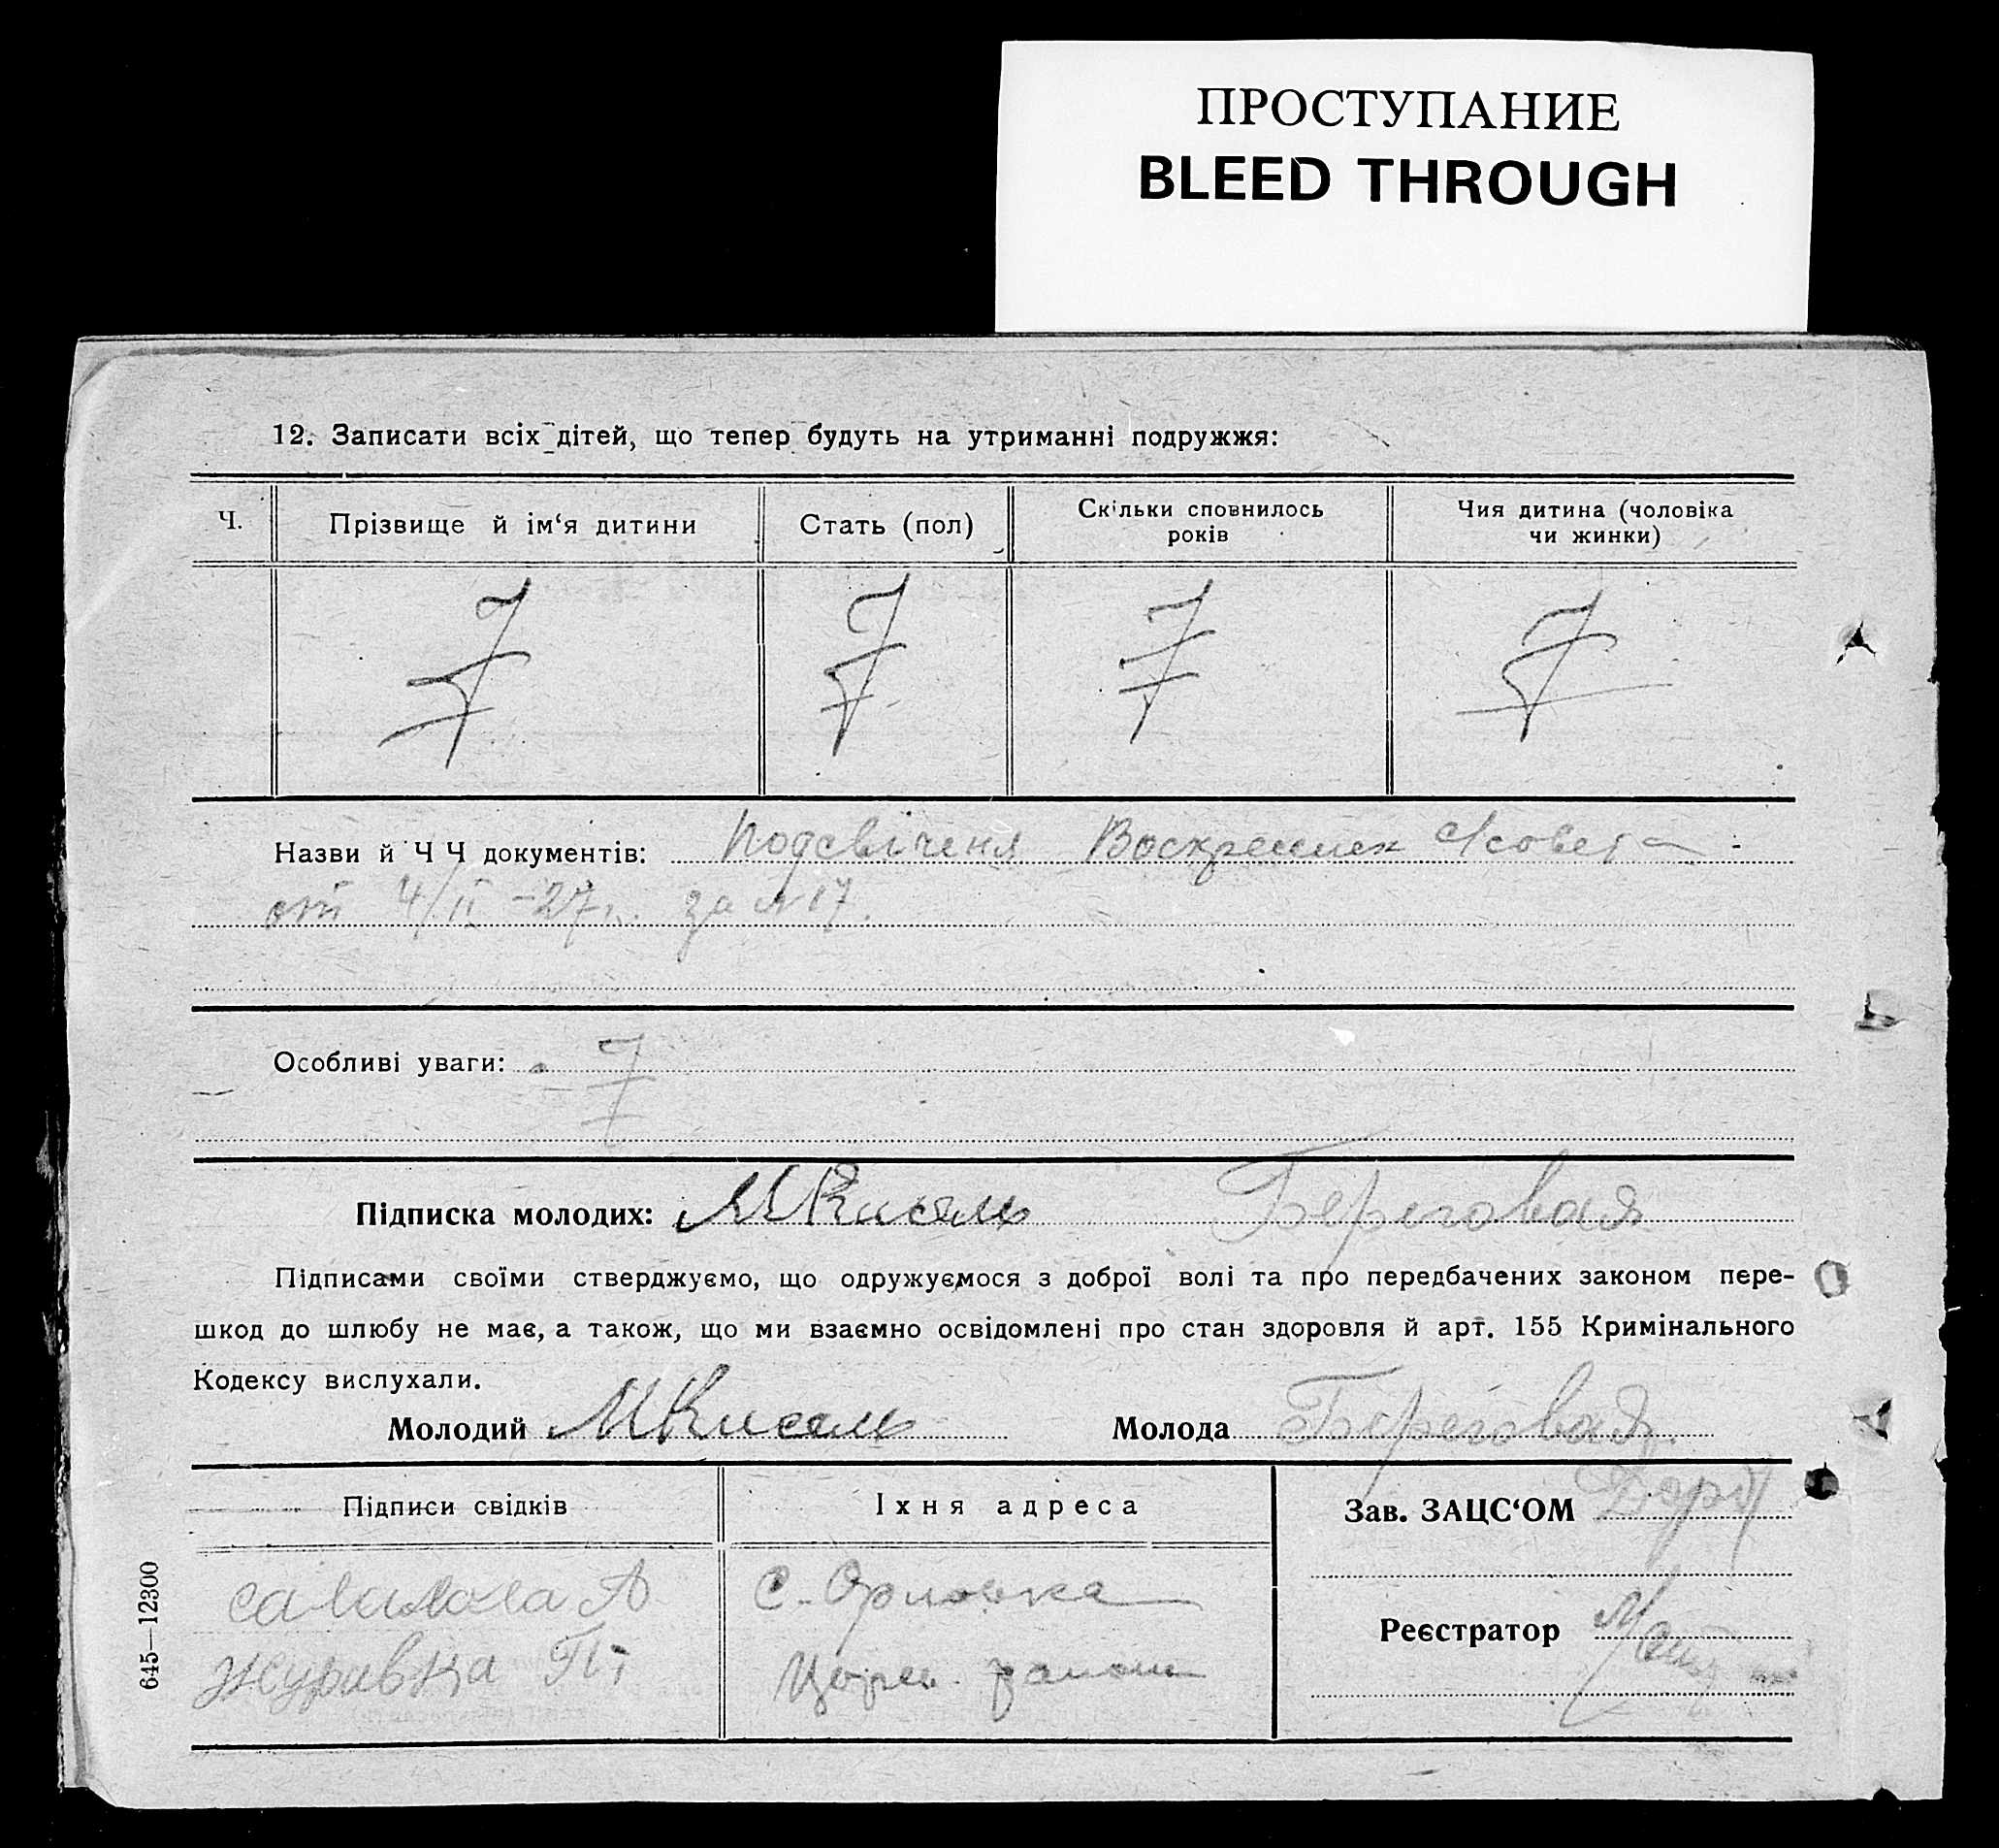 ПРОСТУПАНИЕ
BLEED THROUGH
12. Записати всіх дітей, що тепер будуть на утриманні подружжя:
Ч. Прізвище й ім‘я дитини Стать (пол) Скільки сповнилось років Чия дитина (чоловіка чи жинки)
Назви й Ч Ч документів: Подсвіченя Воскресенск
от 4/II -27г. за №17.
Особливі уваги:
Підписка молодих: МКисель Береговая
Підписами своїми стверджуємо, що одружуємося з доброї волі та про передбачених законом пере-
шкод до шлюбу не має, а також, що ми взаємно освідомлені про стан здоровля й арт. 155 Кримінального
Кодексу вислухали.
Молодий МКисель Молода Береговая
Підписи свідків Їхня адреса Зав. ЗАЦС‘ОМ
С. Орловка
Реєстратор
Журавка район
645—12300